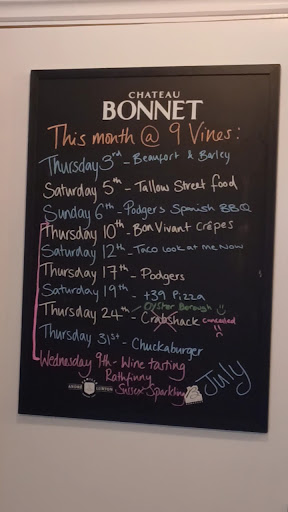 CHATEAU
BONNET
This month @ 9 Vines:
Thursday 3rd - Beaufort & Barley
Saturday 5th - Tallow Street food
Sunday 6th - Podgers Spanish BBQ
Thursday 10th - Bon Vivant Crêpes
Saturday 12th - Taco look at me Now
Thursday 17th - Podgers
Saturday 19th - +39 Pizza
Oyster Borough
Thursday 24th - Crabshack cancelled
Thursday 31st - Chuckaburger
Wednesday 9th - Wine tasting
Rathfinny
Sussex Sparkling
ANDRÉ LURTON
July